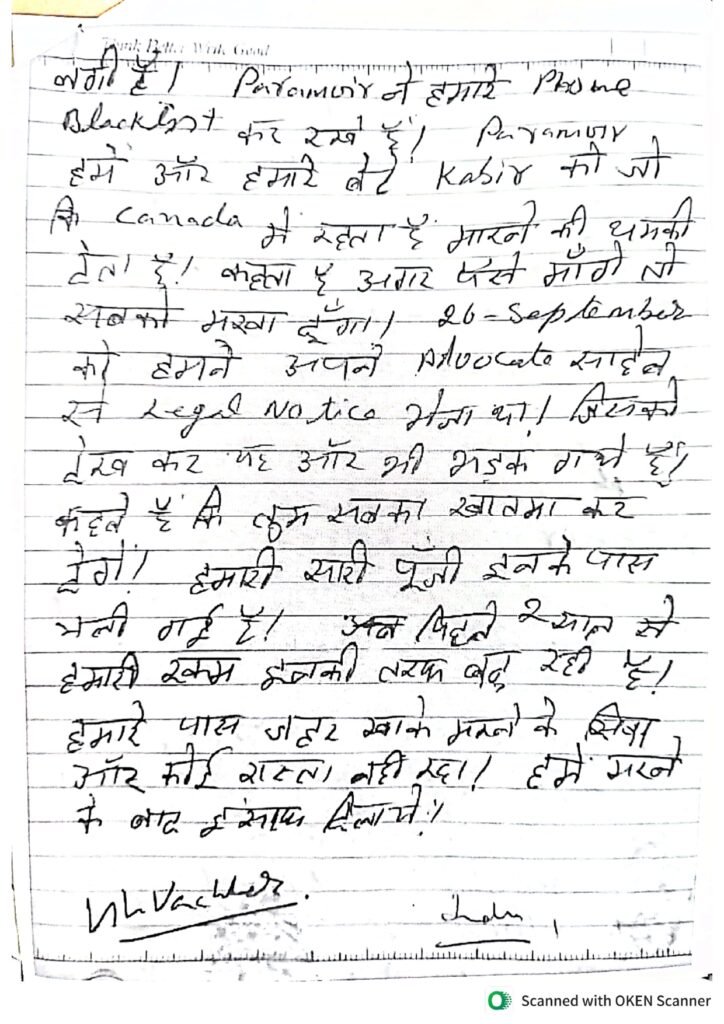 Think Better Write Good
लगी हैं। Paramvir ने हमारे Phone
Blacklist कर रखे हैं। Paramvir
हमें और हमारे बेटे Kabir को जो
कि Canada में रहता है मारने की धमकी
देता है। कहता है अगर पैसे माँगे तो
सबको मरवा दूँगा। 26-September
को हमने अपने Advocate साहेब
से Legal Notice भेजा था। जिसको
देख कर यह और भी भड़क गये हैं।
कहते हैं कि तुम सबका खातमा कर
देगें। हमारी सारी पूँजी इनके पास
चली गई है। पिछले 2 साल से
हमारी रकम इनकी तरफ बढ़ रही है।
हमारे पास जहर खाके मरने के सिवा
और कोई रास्ता नहीं रहा। हमें मरने
के बाद इंसाफ दिलाये।
Scanned with OKEN Scanner